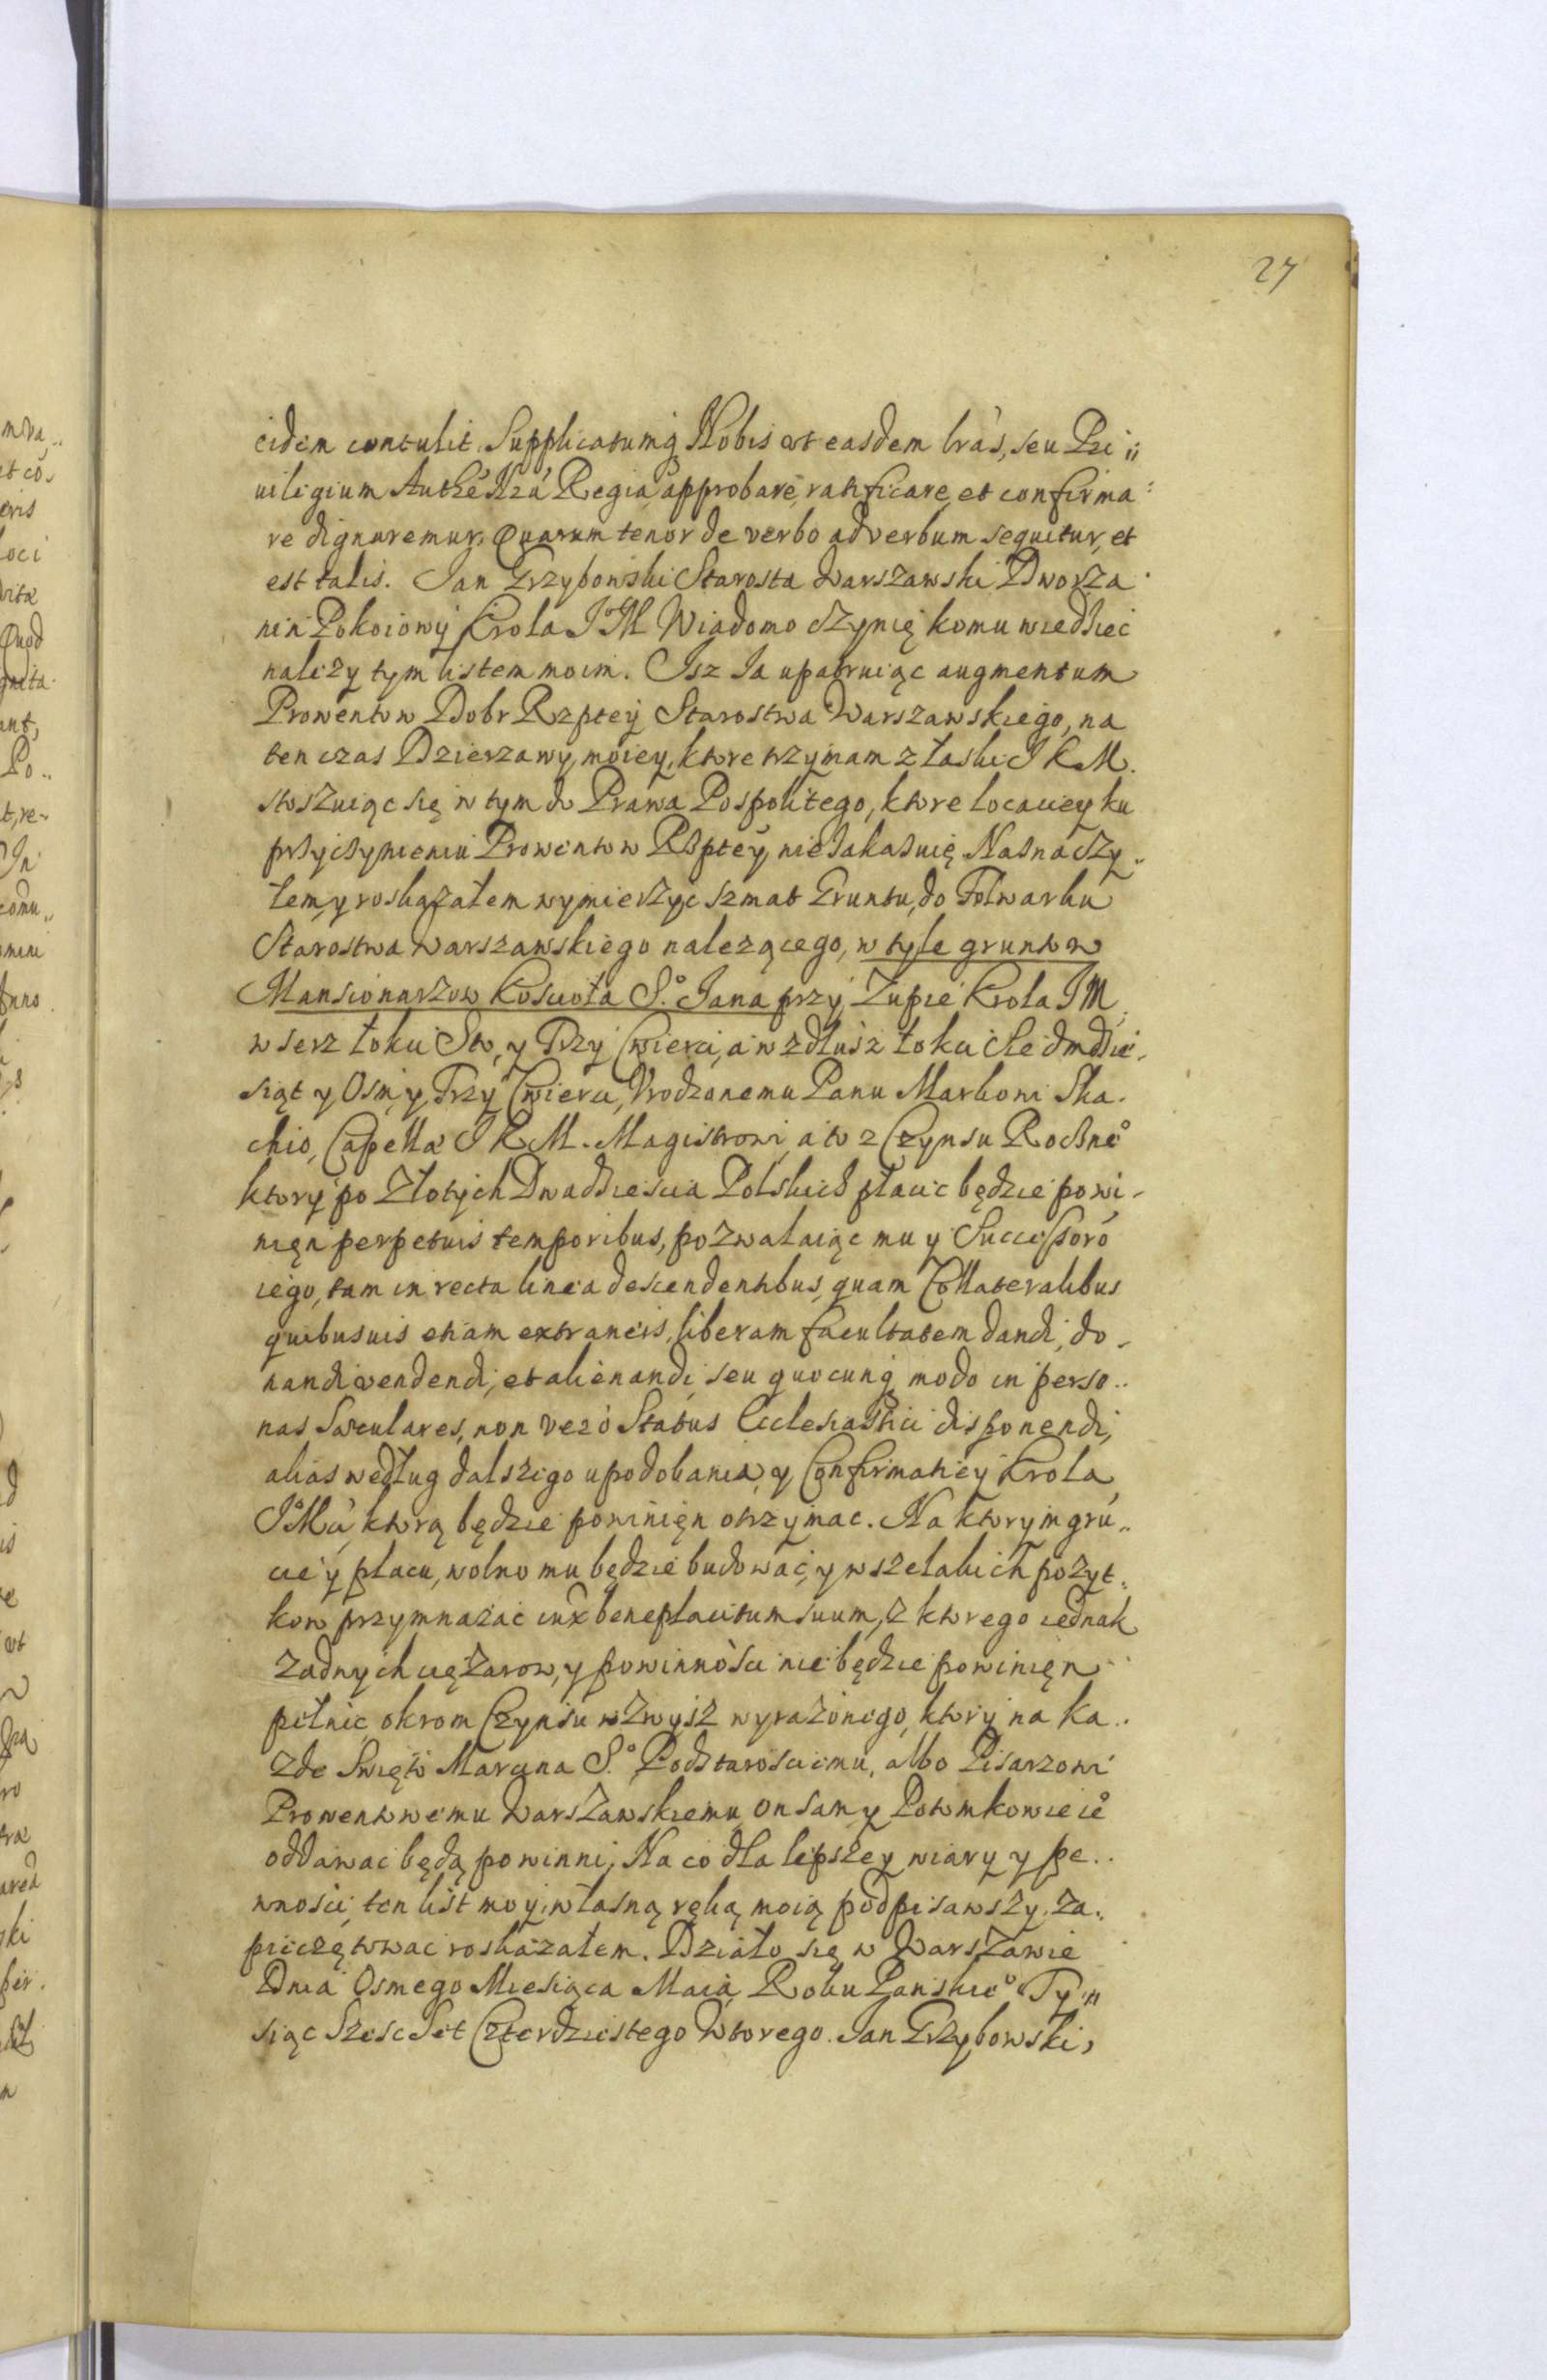 27
eidem contulit. Supplicatumq̨ Nobis ut easdem lrãs, seu Pri„
uilegium Authẽ Nrã Regia approbare, ratificare, et confirma:
re dignaremur, Quarum tenor de verbo ad verbum sequitur, et
est talis. Jan Grzybowski Starosta Warszawski Dworza
nin Pokoiowy Krola J̊M Wiadomo czynię komu wiedziec
nalezy tym listem moim. Isz Ja upatruiąc augmentum
Prowentow Dobr Rzptey Starostwa Warszawskiego, na
ten czas Dzierzawy moiey, ktore trzymam z łaski J K M.
stosuiąc się w tym do Prawa Pospolitego, ktore locaciey ku
przyczynieniu Prowentow Rzptey nie zakazuię Naznaczy„
łem, y roskazałem wymierzyc szmat Gruntu, do Folwarku
Starostwa Warszawskiego nalezącego, w tyle gruntow
Mansionarzow Koscioła S.° Jana przy Zupie Krola J M,
w serz łoku Sto, y Trzy Cwierci, a w zdłusz łokci
siąt y Osm, y Trzy Cwierci, Vrodzonemu Panu Markowi Ska.
chio, Capellæ J K M. Magistrowi, a to z Czynsu Rocznė
ktory po Złotych Dwadziescia Polskich płacic będzie powi-
nięn perpetuis temporibus, pozwalaiąc mu y Successorõ
iego, tam in recta linea descendentibus, quam Collateralibus
quibusuis etiam extraneis, liberam facultatem dandi, do-
nandi vendendi, et alienandi, seu quocunq̨ modo in perso..
nas Sæculares, non verò Status Ecclesiastici disponendi,
alias według dalszego upodobania, y Confirmatiey Krola
J̊Mci, ktorą będzie powinięn otrzymac. Na ktorym grũ„
cie y placu, wolno mu będzie budowac, y wszelakich pozyt„
kow przymnazac iux̃ beneplacitum suum, z ktorego iednak
zadnych cięzarow, y powinnosci nie będzie powinięn
pełnic, okrom Czynsu wzwysz wyrazonego, ktory na ka..
zde Swięto Marcina S.° Podstarosciemu, albo Pisarzowi
Prowentowemu Warszawskiemu on sam y Potomkowie ie̊
oddawac będą powinni, Na co dla lepszey wiary y pe..
wnosci, ten list moy, własną ręką moią podpisawszy, za„
pieczętowac roskazałem. Działo się w Warszawie
Dnia Osmego Miesiąca Maia Roku Panskie° Ty„
siąc Szesc Set Czterdziestego Wtorego. Jan Grzybowski,